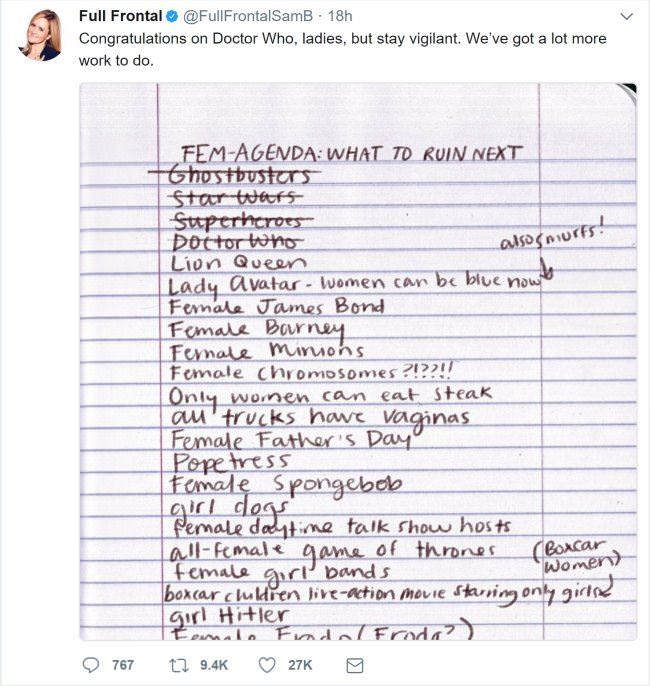 Full Frontal @FullFrontalSamB · 18h
Congratulations on Doctor Who, ladies, but stay vigilant. We've got a lot more
work to do.
FEM-AGENDA: WHAT TO RUIN NEXT
Ghostbusters
Star Wars
Superheroes
Doctor Who
also smurfs!
Lion Queen
Lady Avatar - women can be blue now
Female James Bond
Female Barney
Female Minions
Female Chromosomes ?!??!!
Only women can eat steak
all trucks have vaginas
Female Father's Day
Popetress
Female Spongebob
girl dogs
female daytime talk show hosts
all-female game of thrones
(Boxcar
Women)
female girl bands
boxcar children live-action movie starring only girls
girl Hitler
Female Frodo (Froda?)
767 9.4K 27K